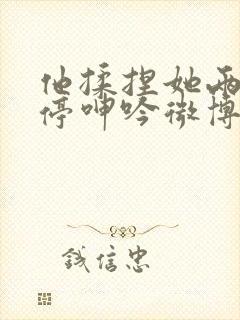 他揉捏她两
停呻吟微博
钱信忠